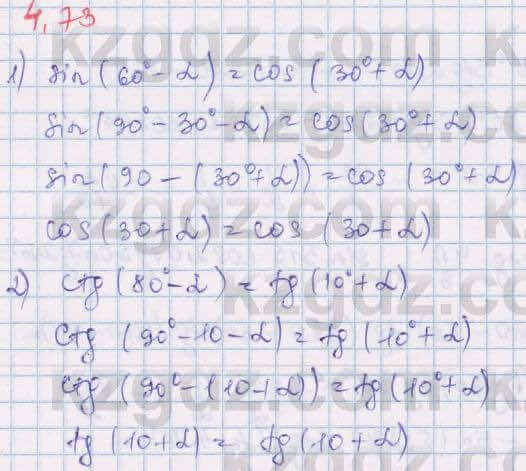 4.73
1) sin(60°-α)=cos(30°+α)
sin(90°-30°-α)=cos(30°+α)
sin(90-(30°+α))=cos(30°+α)
cos(30+α)=cos(30+α)
2) ctg(80°-α)=tg(10°+α)
ctg(90°-10-α)=tg(10°+α)
ctg(90°-(10+α))=tg(10°+α)
tg(10+α)=tg(10+α)
kzgdz.com